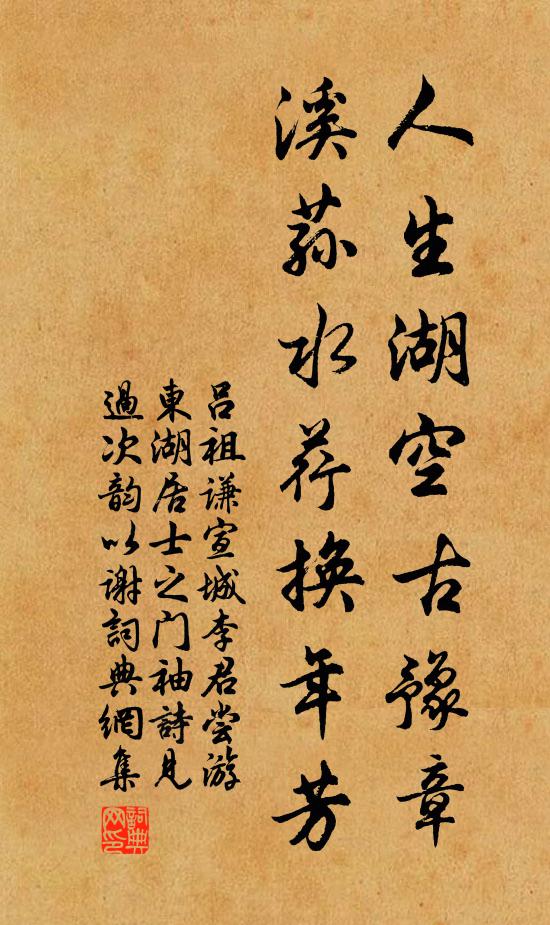 人生湖空古豫章
溪蓀水荇換年芳
呂祖謙宣城李君嘗游
東湖居士之門袖詩見
過次韵以谢詞典網集
詞典网印